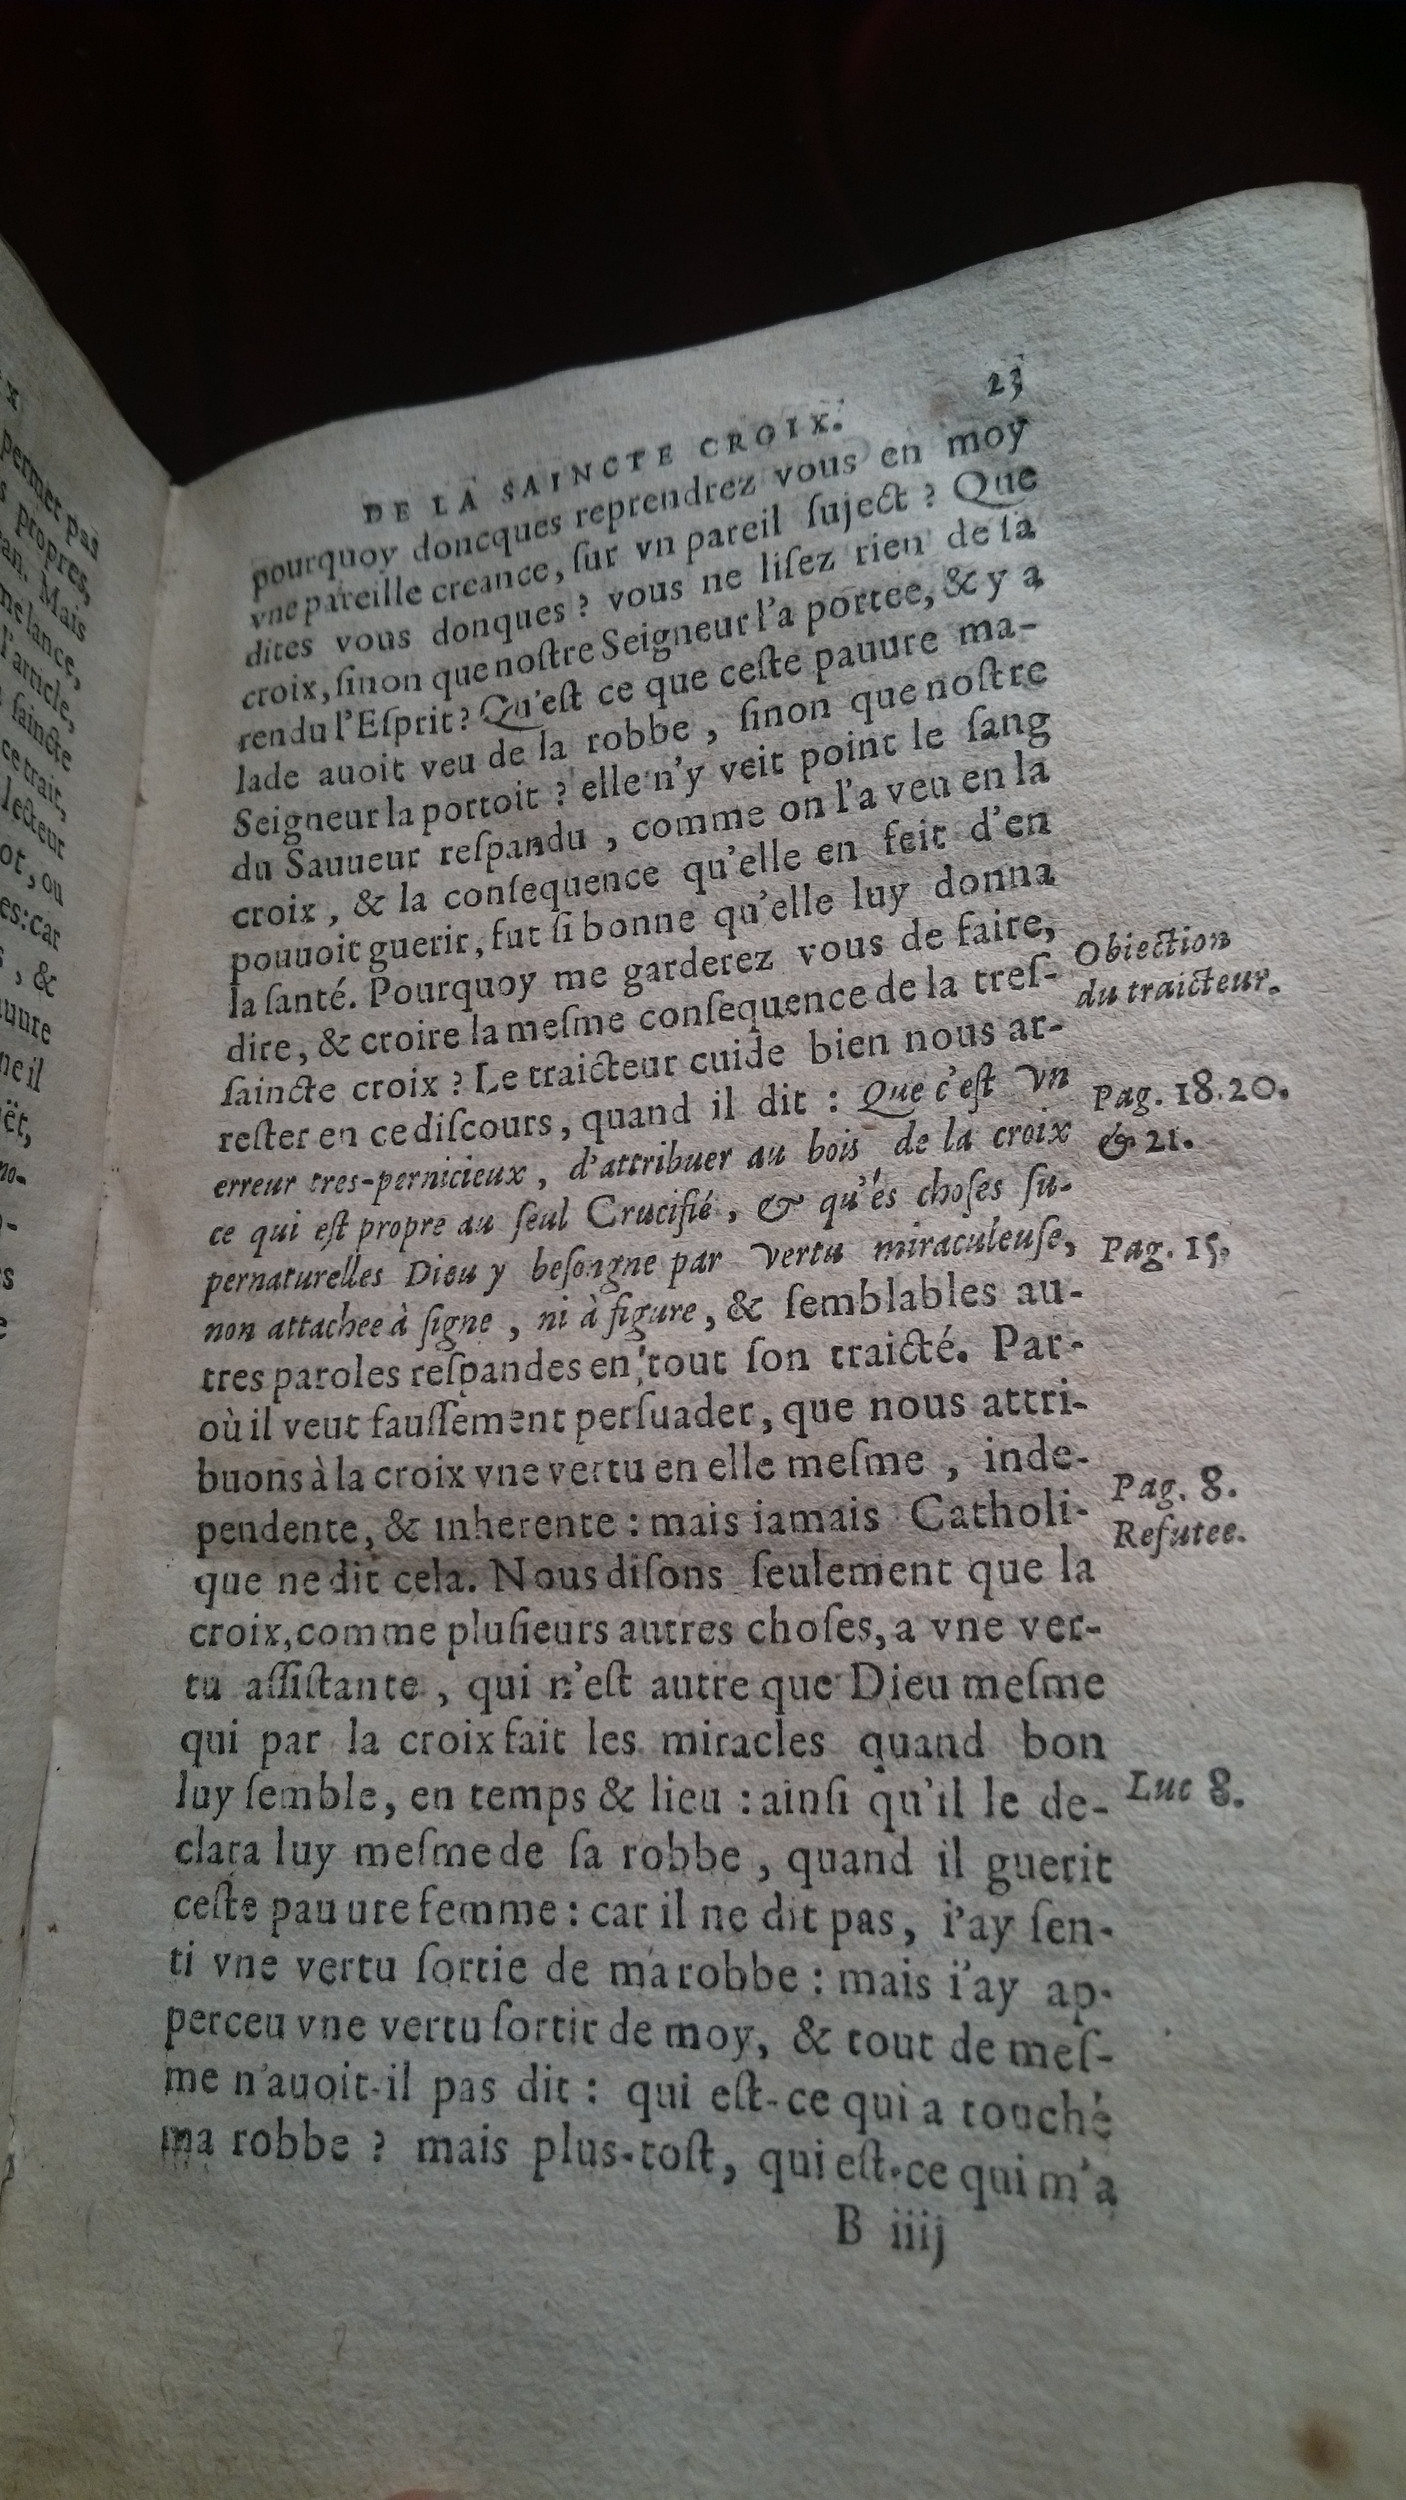 x
permet pas
propres,
an. Mais
lance,
l'article,
ſaincte
ce trait,
lecteur
ot, ou
es: car
, &
uure
ne il
no-
23
DE LA SAINCTE CROIX.
pourquoy doncques reprendrez vous en moy
vne pareille creance, ſur vn pareil ſuject? Que
dites vous donques? vous ne liſez rien de la
croix, ſinon que noſtre Seigneur l'a portee, & y a
rendu l'Eſprit? Qu'eſt ce que ceſte pauure ma-
lade auoit veu de la robbe, ſinon que noſtre
Seigneur la portoit? elle n'y veit point le ſang
du Sauueur reſpandu, comme on l'a veu en la
croix, & la conſequence qu'elle en feit d'en
pouuoit guerir, fut ſi bonne qu'elle luy donna
la ſanté. Pourquoy me garderez vous de faire,
dire, & croire la meſme conſequence de la treſ-
ſaincte croix? Le traicteur cuide bien nous ar-
reſter en ce diſcours, quand il dit: Que c'eſt vn
erreur tres-pernicieux, d'attribuer au bois de la croix
ce qui eſt propre au ſeul Crucifié, & qu'és choſes ſu-
pernaturelles Dieu y beſongne par vertu miraculeuſe,
non attachee à ſigne, ni à figure, & ſemblables au-
tres paroles reſpandes en tout ſon traicté. Par-
où il veut fauſſement perſuader, que nous attri-
buons à la croix vne vertu en elle meſme, inde-
pendente, & inherente: mais iamais Catholi-
que ne dit cela. Nous diſons ſeulement que la
croix, comme pluſieurs autres choſes, a vne ver-
tu aſſiſtante, qui n'eſt autre que Dieu meſme
qui par la croix fait les miracles quand bon
luy ſemble, en temps & lieu: ainſi qu'il le de-
clara luy meſme de ſa robbe, quand il guerit
ceſte pauure femme: car il ne dit pas, i'ay ſen-
ti vne vertu ſortie de ma robbe: mais i'ay ap-
perceu vne vertu ſortir de moy, & tout de meſ-
me n'auoit-il pas dit: qui eſt-ce qui a touché
ma robbe? mais plus-toſt, qui eſt-ce qui m'a
B iiij
Obiection
du traicteur.
Pag. 18.20.
& 21.
Pag. 15.
Pag. 8.
Refutee.
Luc 8.